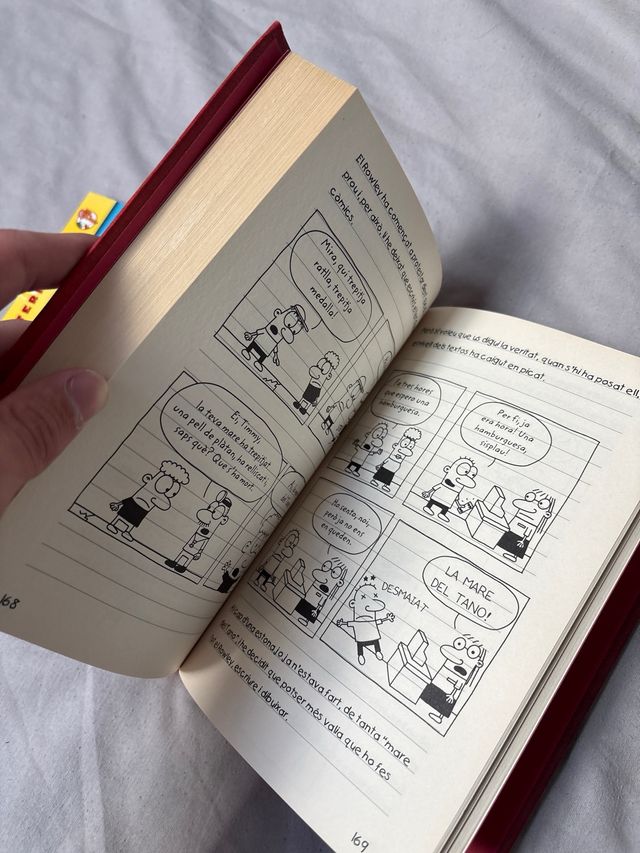 El Rowley ha començat a protestar
prou i, per això, li he deixat que
còmics.
Mira, qui trepitja
ratlla, trepitja
medalla!
Ei, Timmy,
la teva mare ha trepitjat
una pell de plàtan, ha relliscat i,
saps què? Que s'ha mort.
168
Però si voleu que us digui la veritat, quan s'hi ha posat ell,
el nivell dels textos ha caigut en picat.
Fa tres hores
que espero una
hamburguesa.
Per fi, ja
era hora! Una
hamburguesa,
sisplau!
Ho sento, noi,
però ja no ens
en queden.
DESMAIAT
LA MARE
DEL TANO!
Al cap d'una estona, jo ja n'estava fart, de tanta "mare
del Tano", i he decidit que potser més valia que ho fes
tot el Rowley, escriure i dibuixar.
169
TER